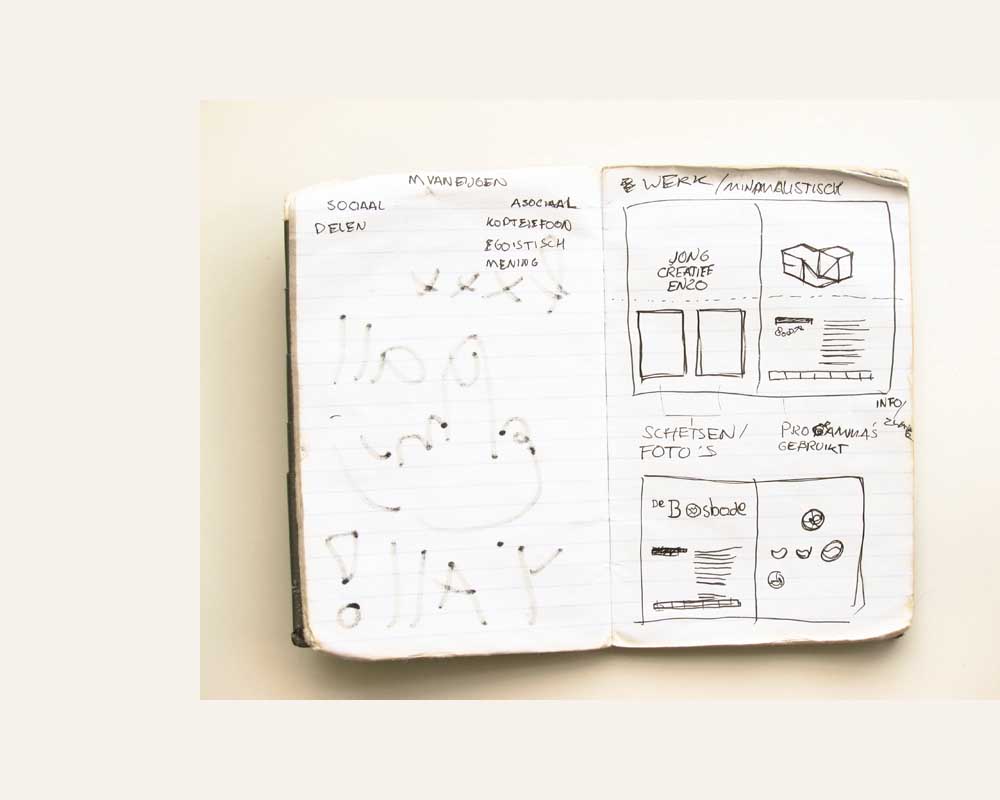 MVANEIJGEN
SOCIAAL
ASOCIAAL
DELEN
KOPTELEFOON
EGOISTISCH
MENING
WERK/MINIMALISTISCH
JONG
CREATIEF
ENZO
INFO/
SCHETSEN/
FOTO'S
PROGRAMMA'S
GEBRUIKT
De Bosbode